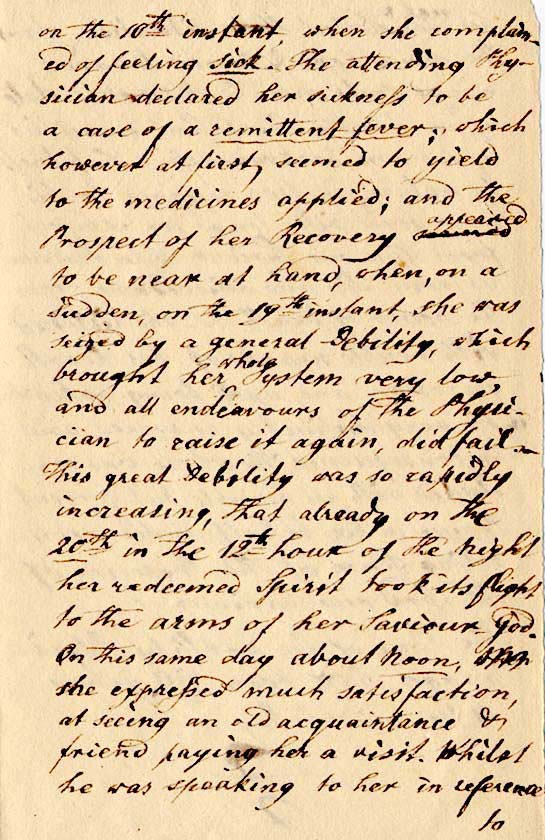 on the 10th instant, when she complain-
ed of feeling sick. The attending Phy-
sician declared her sickness to be
a case of a remittent fever; which
however at first, seemed to yield
to the medicines applied; and the
Prospect of her Recovery seemed appeared
to be near at hand, when, on a
sudden, on the 19th instant, she was
seized by a general Debility, which
brought her whole System very low,
and all endeavours of the Physi-
cian to raise it again, did fail.
This great Debility was so rapidly
increasing, that already on the
20th in the 12th hour of the night
her redeemed Spirit took its flight
to the arms of her Saviour God.
On this same day about Noon,
she expressed much satisfaction,
at seeing an old acquaintance &
friend paying her a visit. Whilst
he was speaking to her in reference
to